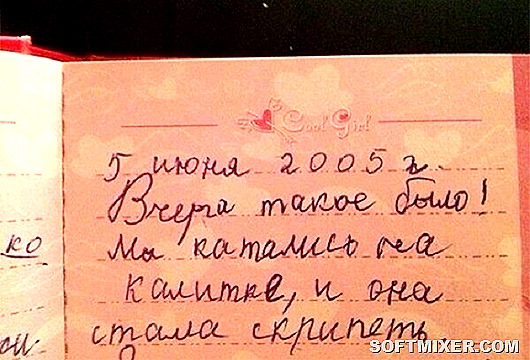 Cool Girl
5 июня 2005 г.
Вчера такое было!
Мы катались на
ко
калитке, и она
стала скрипеть
SOFTMIXER.COM